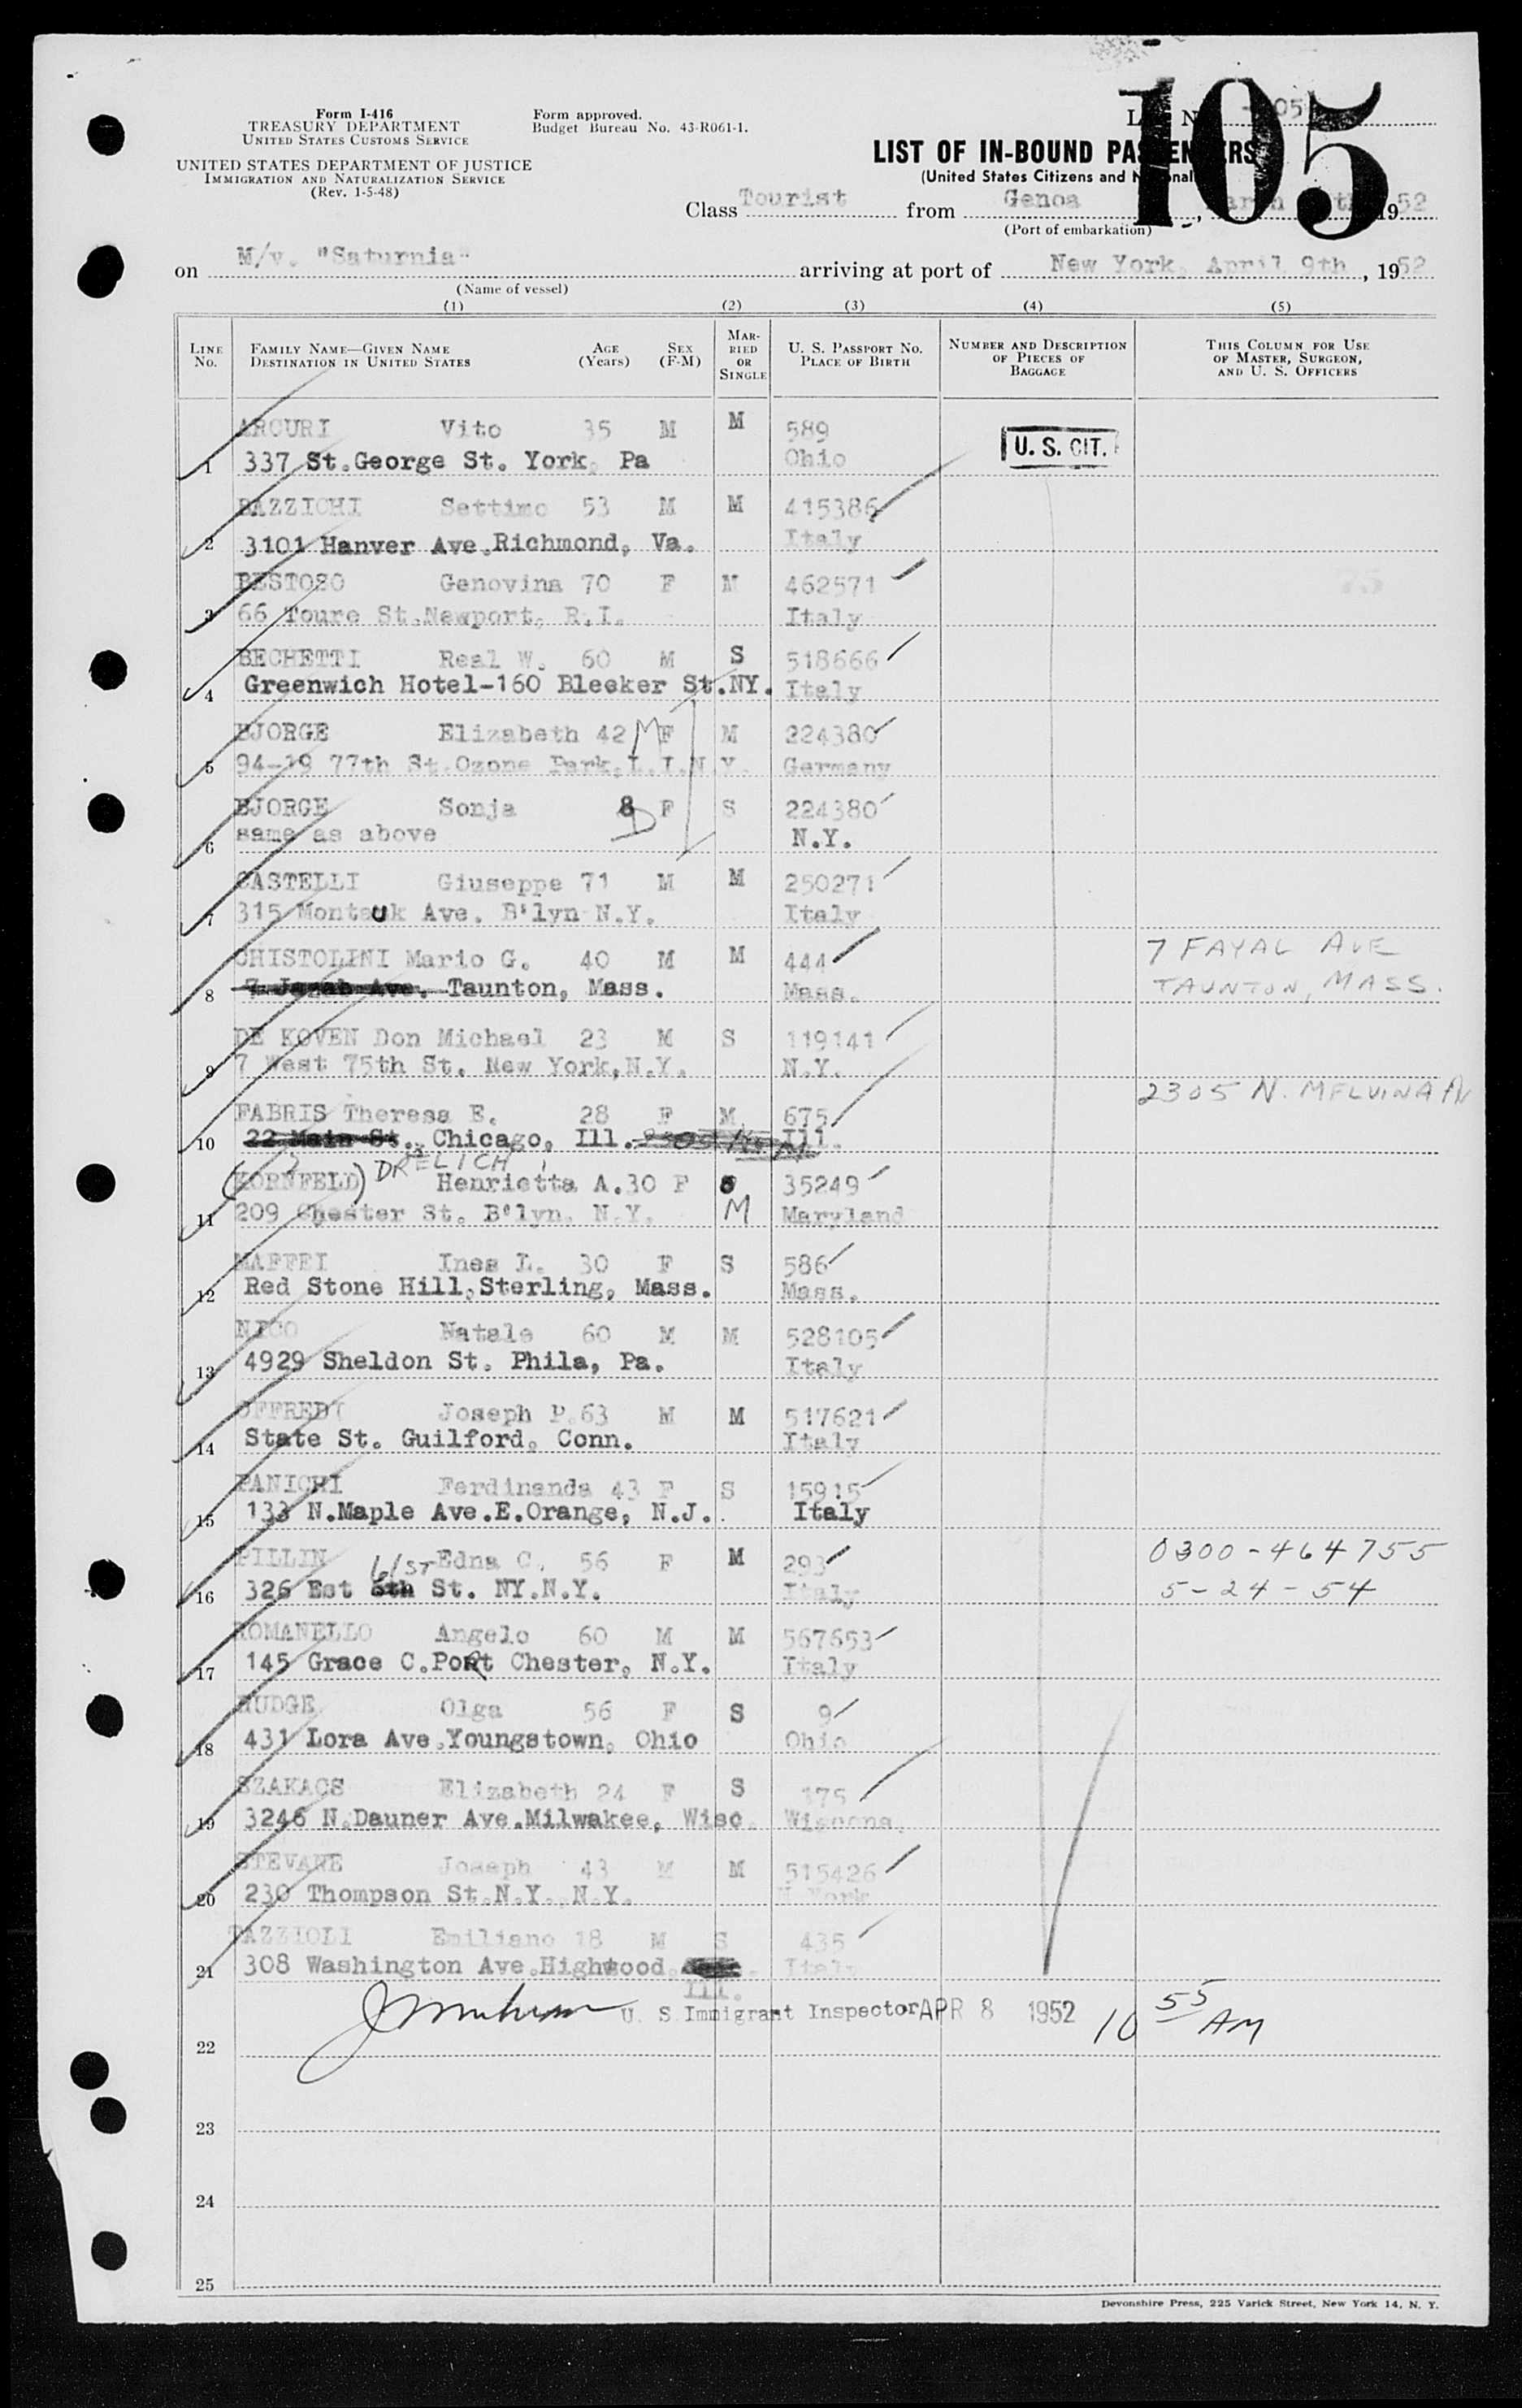 105
Form I-416
TREASURY DEPARTMENT
UNITED STATES CUSTOMS SERVICE
UNITED STATES DEPARTMENT OF JUSTICE
IMMIGRATION AND NATURALIZATION SERVICE
(Rev. 1-5-48)
Form approved.
Budget Bureau No. 43-R061-1.
LIST OF IN-BOUND PASSENGERS
(United States Citizens and Nationals
Class Tourist from Genoa, 1952
(Port of embarkation)
on M/v. "Saturnia" arriving at port of New York, April 9th, 1952
(Name of vessel)
(1) (2) (3) (4) (5)
LINE No. FAMILY NAME—GIVEN NAME DESTINATION IN UNITED STATES AGE (Years) SEX (F-M) MARRIED OR SINGLE U. S. PASSPORT No. PLACE OF BIRTH NUMBER AND DESCRIPTION OF PIECES OF BAGGAGE THIS COLUMN FOR USE OF MASTER, SURGEON, AND U. S. OFFICERS
ARCURI Vito 35 M M 589
1 337 St.George St. York, Pa Ohio U. S. CIT.
BAZZICHI Settimo 53 M M 415386
2 3101 Hanver Ave.Richmond, Va. Italy
BESTOSO Genovina 70 F M 462571
3 66 Toure St.Newport, R.I. Italy
BECHETTI Real W. 60 M S 518666
4 Greenwich Hotel-160 Bleeker St.NY. Italy
BJORGE Elizabeth 42 M F M 224380
5 94-19 77th St.Ozone Park,L.I.N.Y. Germany
BJORGE Sonja 8 D F S 224380
6 same as above N.Y.
CASTELLI Giuseppe 71 M M 250271
7 315 Montauk Ave. B'lyn N.Y. Italy
CHISTOLINI Mario G. 40 M M 444 7 FAYAL AVE
8 Taunton, Mass. Mass. TAUNTON, MASS.
DE KOVEN Don Michael 23 M S 119141
9 7 West 75th St. New York,N.Y. N.Y.
2305 N. MELVINA AV
FABRIS Theresa E. 28 F M 675
10 22 Main St., Chicago, Ill. Ill.
(KORNFELD) DRELICH Henrietta A.30 F S 35249
11 209 Chester St. B'lyn. N.Y. M Maryland
MAFFEI Ines L. 30 F S 586
12 Red Stone Hill,Sterling, Mass. Mass.
NICO Natale 60 M M 528105
13 4929 Sheldon St. Phila, Pa. Italy
OFFREDI Joseph P.63 M M 517621
14 State St. Guilford, Conn. Italy
PANICHI Ferdinanda 43 F S 15915
15 133 N.Maple Ave.E.Orange, N.J. Italy
PILLIN Edna C. 56 F M 293 0300-464755
16 326 Est 5th 61ST St. NY.N.Y. Italy 5-24-54
ROMANELLO Angelo 60 M M 567653
17 145 Grace C.PORt Chester, N.Y. Italy
RUDGE Olga 56 F S 9
18 431 Lora Ave.Youngstown, Ohio Ohio
SZAKACS Elizabeth 24 F S 175
19 3246 N.Dauner Ave.Milwakee, Wisc. Wiscons.
STEVANE Joseph 43 M M 515426
20 230 Thompson St.N.Y. N.Y. N.York
TAZZIOLI Emiliano 18 M S 435
21 308 Washington Ave.Highwood. Italy
Ill.
U. S. Immigrant Inspector APR 8 1952 10 55 AM
22
23
24
25
Devonshire Press, 225 Varick Street, New York 14, N. Y.